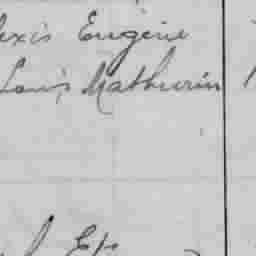 exis Eugène
Louis Mathurin